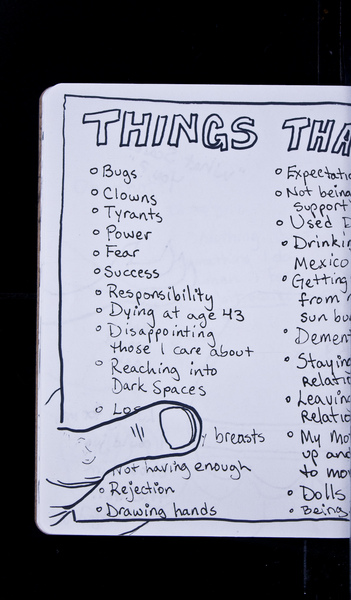 THINGS THA
Bugs
Clowns
Tyrants
Power
Fear
Success
Responsibility
Dying at age 43
Disappointing
those I care about
Reaching into
Dark Spaces
Los
y breasts
Not having enough
Rejection
Drawing hands
Expectatio
Not being
support
Used
Drinkin
Mexico
Getting
from
sun bu
Demen
Staying
relatio
Leaving
Relatio
My Mo
up and
to mo
Dolls
Being